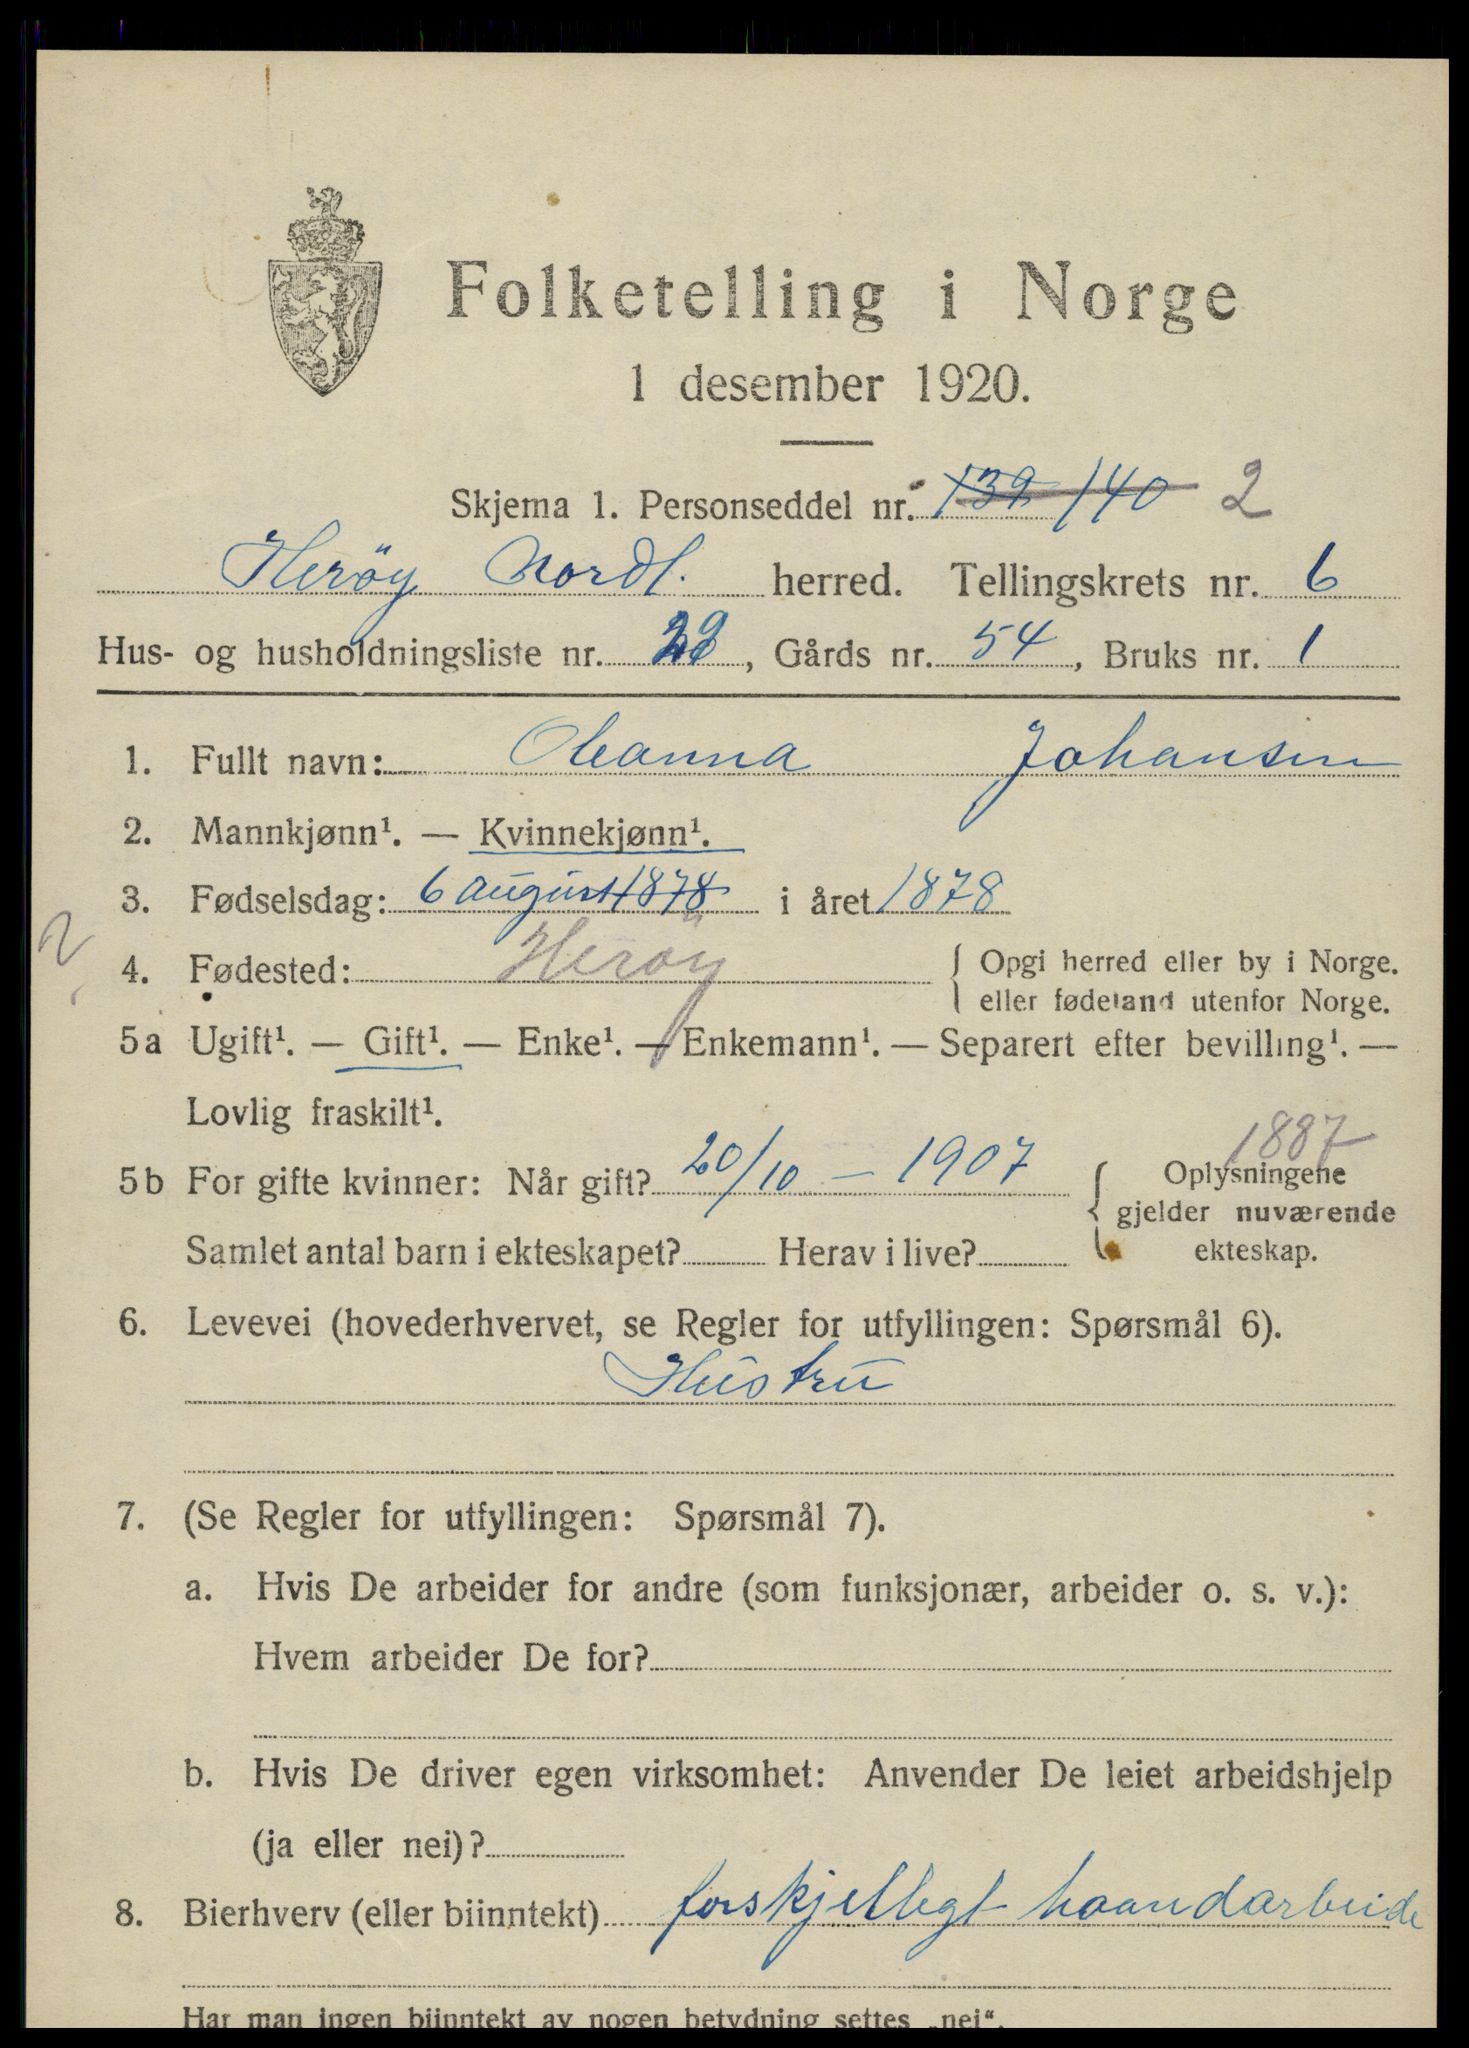 Folketelling i Norge
1 desember 1920.
Skjema 1. Personseddel nr. 139 140 2
Herøy Nordl. herred. Tellingskrets nr. 6
Hus- og husholdningsliste nr. , Gårds nr. 54, Bruks nr. 1
1. Fullt navn: Oleanna Johansen
2. Mannkjønn¹. — Kvinnekjønn¹.
3. Fødselsdag: 6 august 1878 i året 1878
4. Fødested: Herøy { Opgi herred eller by i Norge.
eller fødeland utenfor Norge.
5a Ugift¹. — Gift¹. — Enke¹. — Enkemann¹. — Separert efter bevilling¹. —
Lovlig fraskilt¹.
1887
5b For gifte kvinner: Når gift? 20/10 – 1907 { Oplysningene
gjelder nuværende
Samlet antal barn i ekteskapet? Herav i live? ekteskap.
6. Levevei (hovederhvervet, se Regler for utfyllingen: Spørsmål 6).
Hustru
7. (Se Regler for utfyllingen: Spørsmål 7).
a. Hvis De arbeider for andre (som funksjonær, arbeider o. s. v.):
Hvem arbeider De for?
b. Hvis De driver egen virksomhet: Anvender De leiet arbeidshjelp
(ja eller nei)?
8. Bierhverv (eller biinntekt) forskjellegt haandarbeide
Har man ingen biinntekt av nogen betydning settes „nei“.